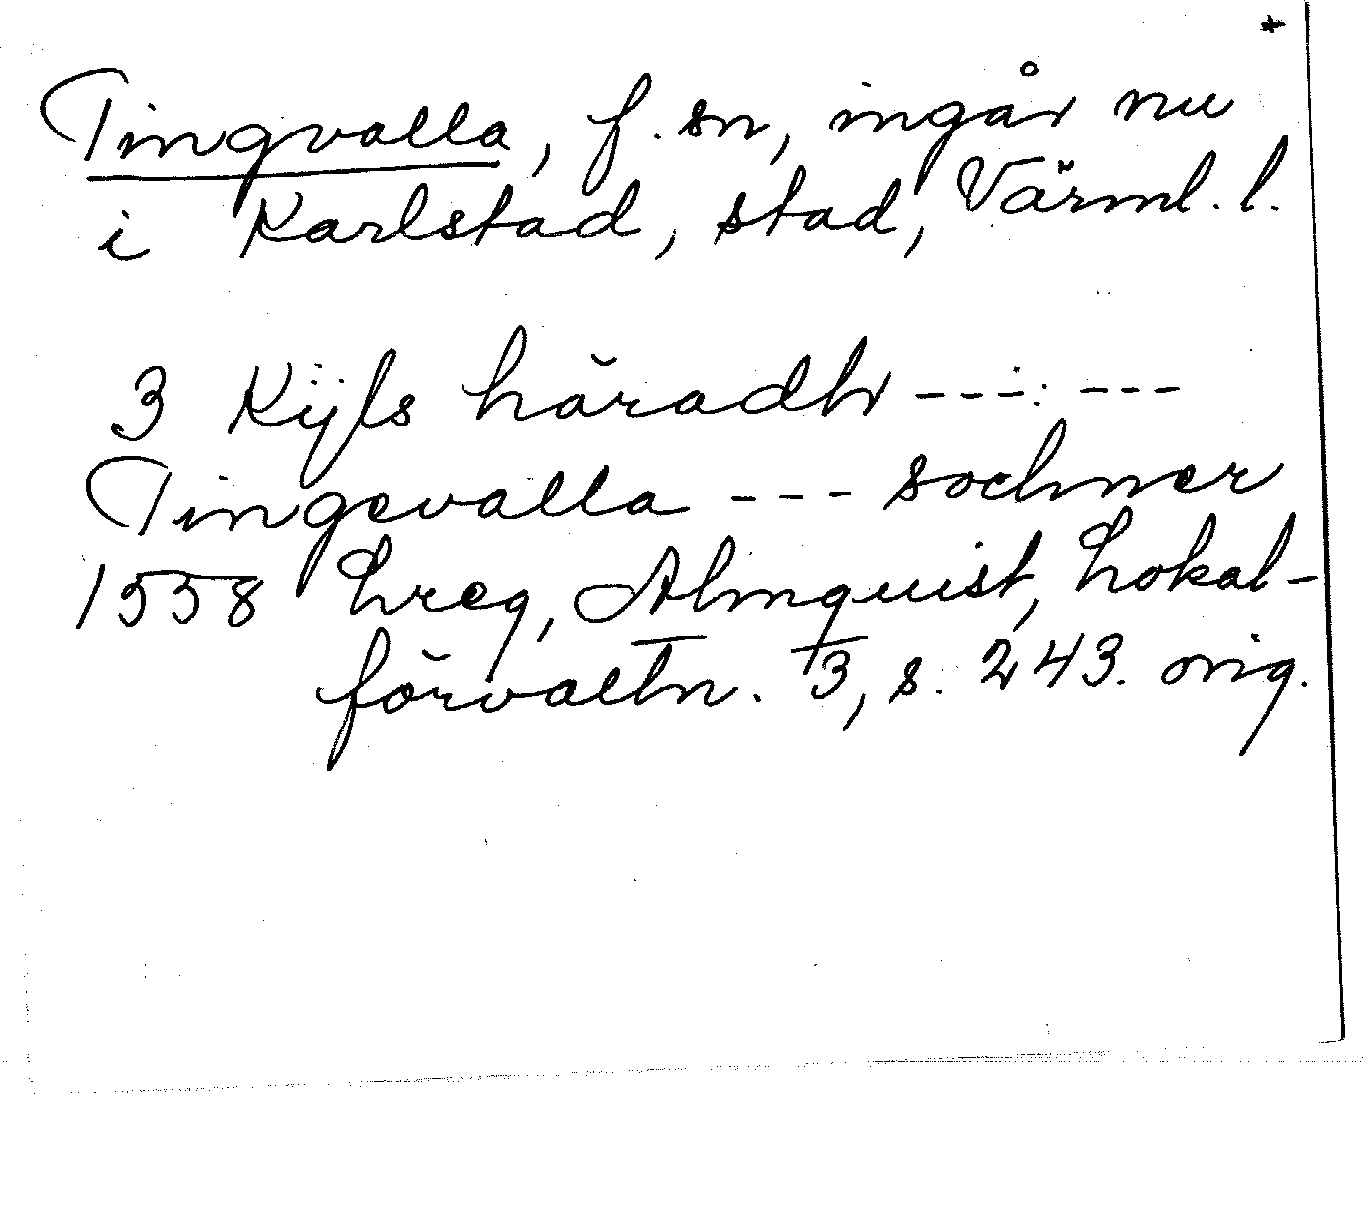 +
Tingvalla, f. sn, ingår nu
i Karlstad, stad, Värml. l.
3 Kÿls häradh --- : ---
Tingevalla --- sochner
1558 Lreg, Almquist, Lokal-
förvaltn. 3, s. 243. orig.